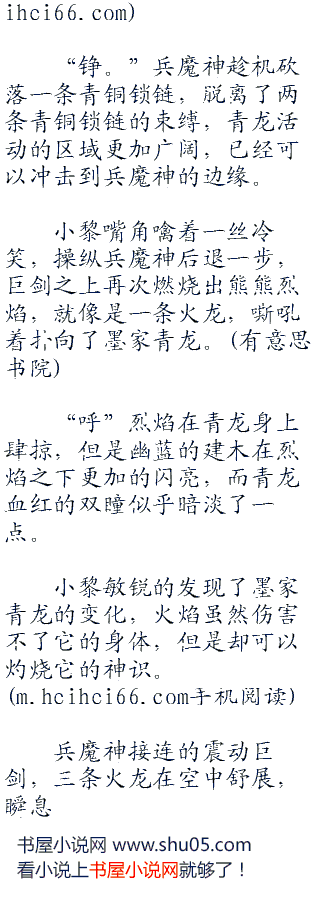 ihci66.com)
“铮。”兵魔神趁机砍
落一条青铜锁链，脱离了两
条青铜锁链的束缚，青龙活
动的区域更加广阔，已经可
以冲击到兵魔神的边缘。
小黎嘴角噙着一丝冷
笑，操纵兵魔神后退一步，
巨剑之上再次燃烧出熊熊烈
焰，就像是一条火龙，嘶吼
着扑向了墨家青龙。(有意思
书院)
“呼”烈焰在青龙身上
肆掠，但是幽蓝的建木在烈
焰之下更加的闪亮，而青龙
血红的双瞳似乎暗淡了一
点。
小黎敏锐的发现了墨家
青龙的变化，火焰虽然伤害
不了它的身体，但是却可以
灼烧它的神识。
(m.hcihci66.com手机阅读)
兵魔神接连的震动巨
剑，三条火龙在空中舒展，
瞬息
书屋小说网 www.shu05.com
看小说上书屋小说网就够了！